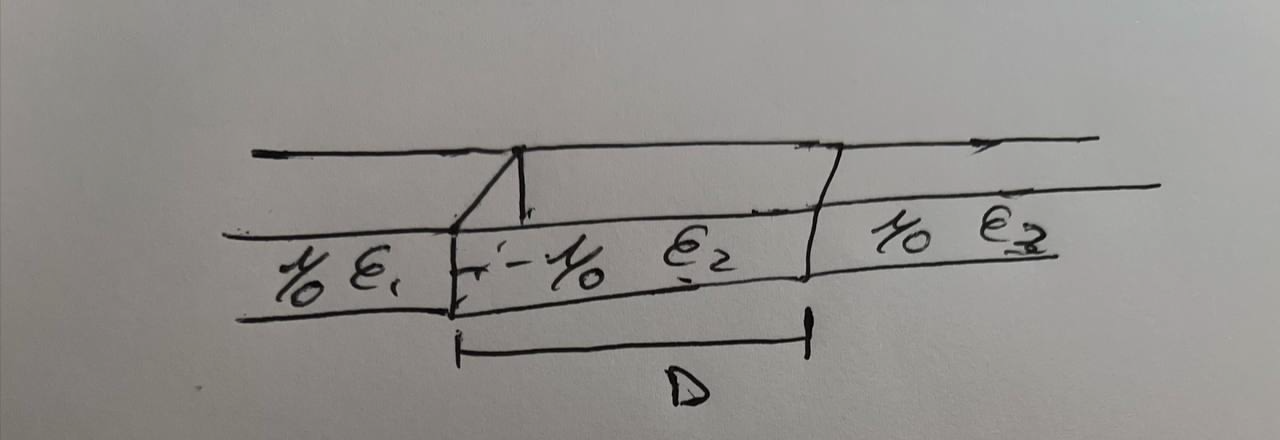 μ0 ε1 μ0 ε2 μ0 ε3
D